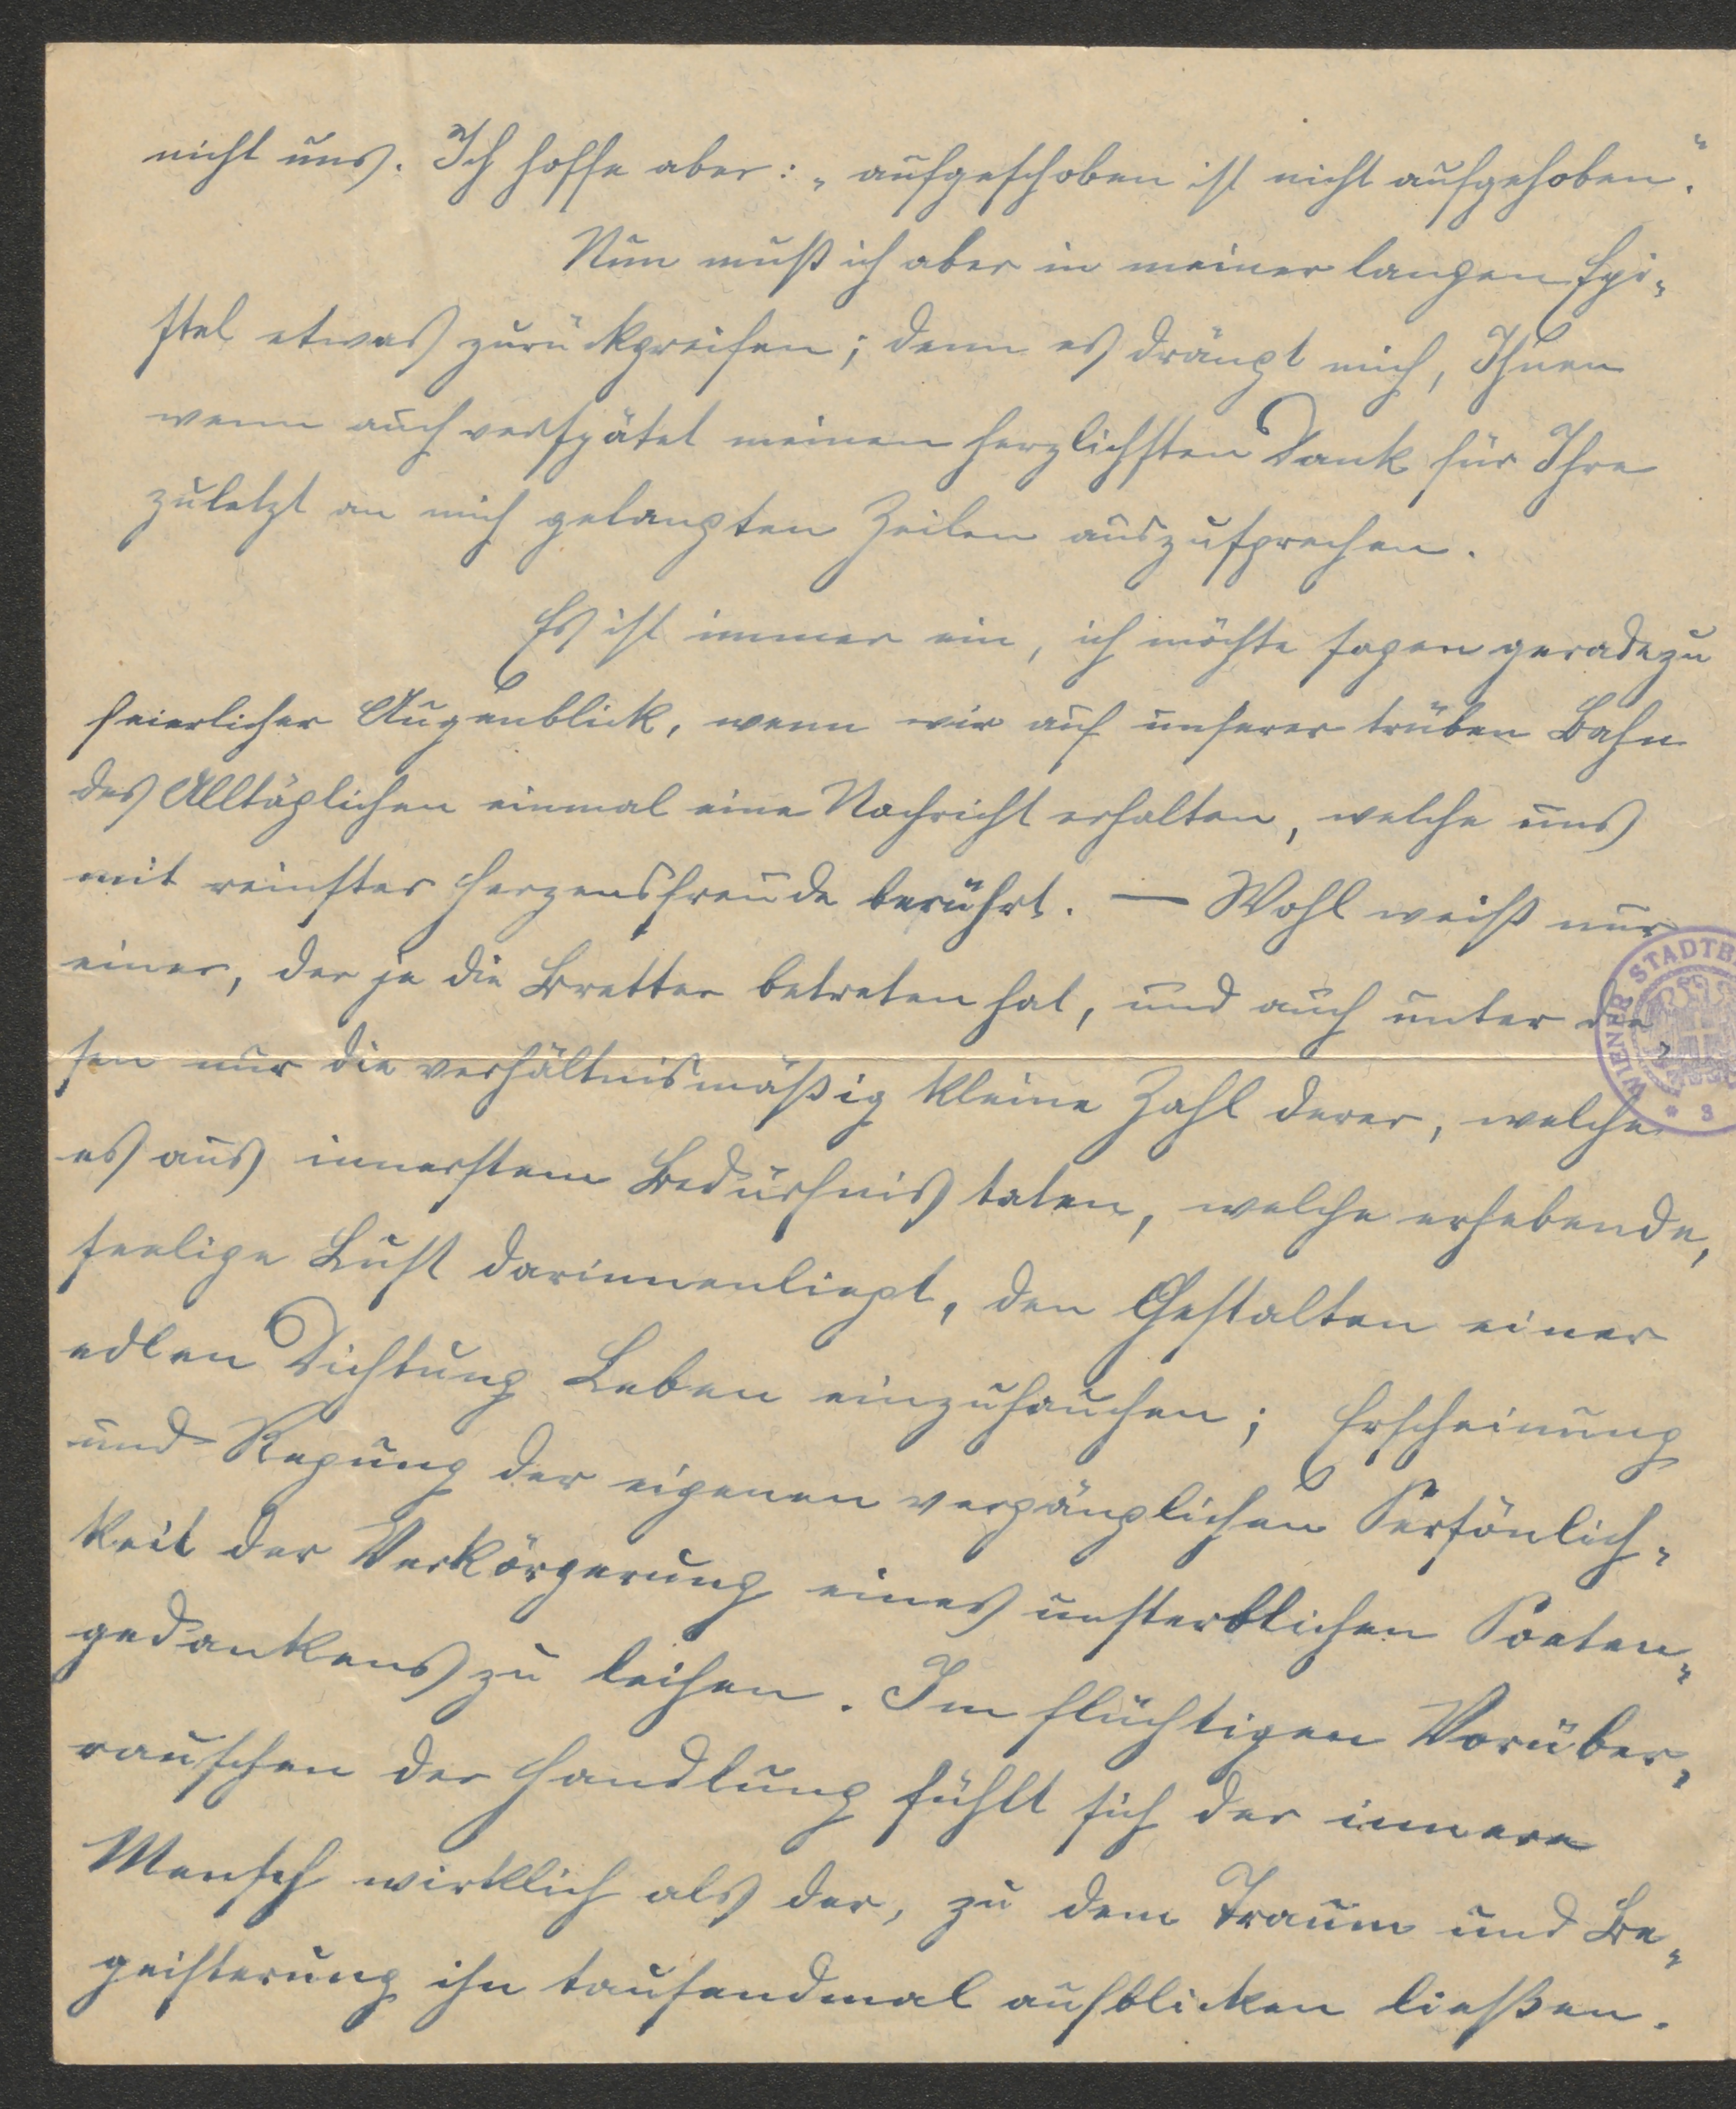 nicht uns. Ich hoffe aber: „aufgeschoben ist nicht aufgehoben."
Nun muß ich aber in meiner langen Epi-
stel etwas zurückgreifen; denn es drängt mich, Ihnen
wenn auch verspätet meinen herzlichsten Dank für Ihre
zuletzt an mich gelangten Zeilen auszusprechen.
Es ist immer ein, ich möchte sagen geradezu
feierlicher Augenblick, wenn wir auf unserer trüben Bahn
des Alltäglichen einmal eine Nachricht erhalten, welche uns
mit reinster Herzensfreude berührt. — Wohl weiß nur
einer, der je die Bretter betreten hat, und auch unter die-
sen nur die verhältnismäßig kleine Zahl derer, welche
es aus innerstem Bedürfnis taten, welche erhebende,
seelige Lust darinnenliegt, den Gestalten einer
edlen Dichtung Leben einzuhauchen; Erscheinung
und Regung der eigenen vergänglichen Persönlich-
keit der Verkörperung eines unsterblichen Poeten-
gedankens zu leihen. Im flüchtigen Vorüber-
rauschen der Handlung fühlt sich der innere
Mensch wirklich als der, zu dem Traum und Be-
geisterung ihn tausendmal aufblicken ließen.
WIENER STADTB
* 3